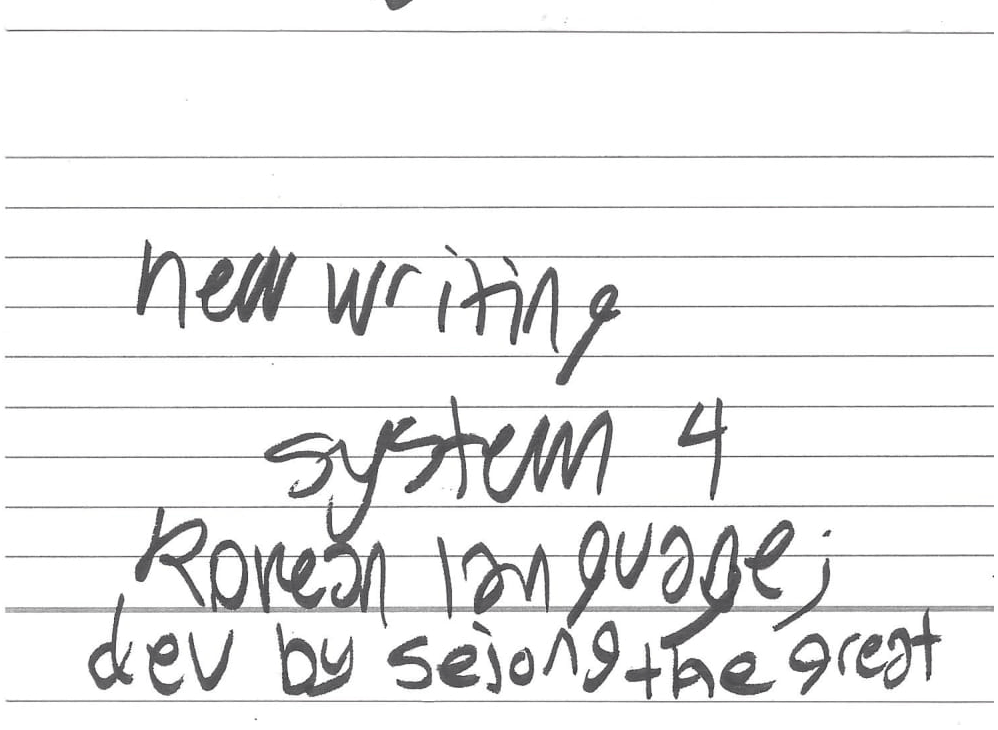 new writing
system 4
Korean language;
dev by sejong the great